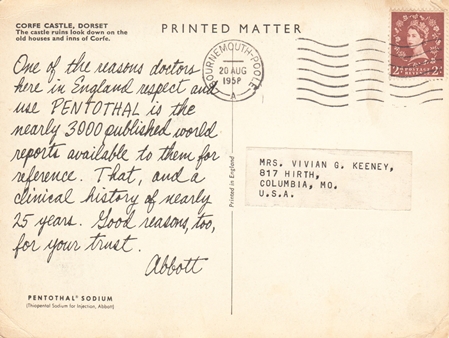 CORFE CASTLE, DORSET
The castle ruins look down on the
old houses and inns of Corfe.
PRINTED MATTER
One of the reasons doctors
here in England respect and
use PENTOTHAL is the
nearly 3000 published world
reports available to them for
reference. That, and a
clinical history of nearly
25 years. Good reasons, too,
for your trust.
Abbott
PENTOTHAL® SODIUM
(Thiopental Sodium for Injection, Abbott)
Printed in England
BOURNEMOUTH-POOLE
20 AUG
1958
A
POSTAGE
REVENUE
MRS. VIVIAN G. KEENEY,
817 HIRTH,
COLUMBIA, MO.
U.S.A.